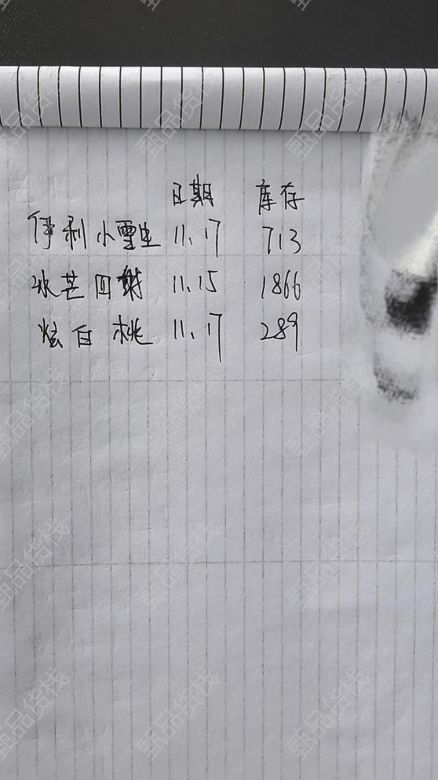 日期 库存
伊利小雪生 11.17 713
冰芒回 11.15 1866
炫白桃 11.17 289
甄品货栈